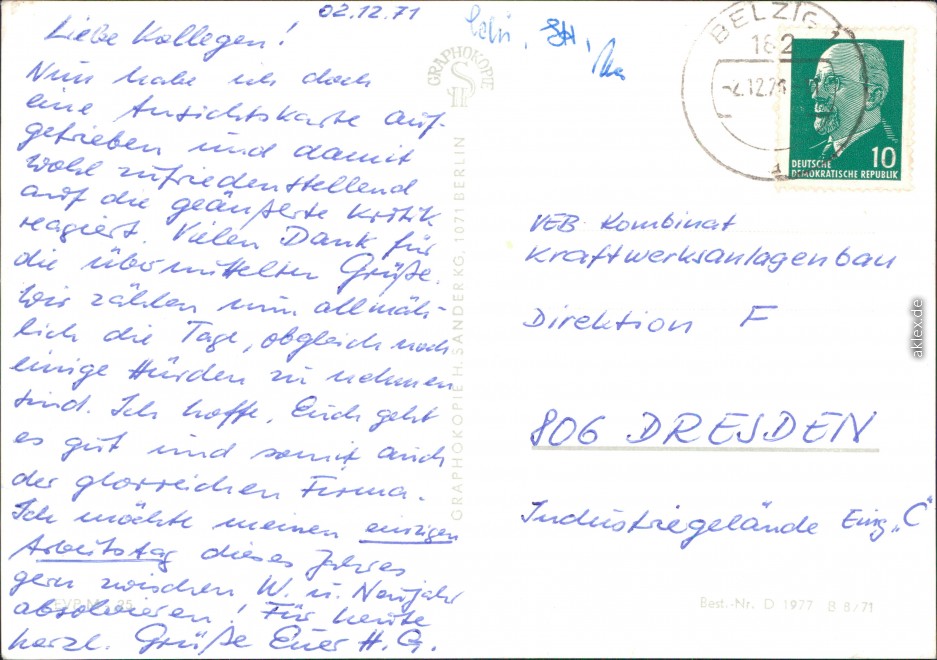 02.12.71
Liebe Kollegen!
Nun habe ich doch
eine Ansichtskarte auf-
getrieben und damit
wohl zufriedenstellend
auf die geäußerte Kritik
reagiert. Vielen Dank für
die übermittelten Grüße.
Wir zählen nun allmäh-
lich die Tage, obgleich noch
einige Hürden zu nehmen
sind. Ich hoffe, Euch geht
es gut und somit auch
der glorreichen Firma.
Ich möchte meinen einzigen
Arbeitstag dieses Jahres
gern zwischen W. u. Neujahr
absolvieren! Für heute
herzl. Grüße Euer H. G.
GRAPHOKOPIE
GRAPHOKOPIE H. SANDER KG, 1071 BERLIN
BELZIG 1
182
-2.12.71
DEUTSCHE
DEMOKRATISCHE REPUBLIK
10
VEB Kombinat
Kraftwerksanlagenbau
Direktion F
806 DRESDEN
Industriegelände Eing „C"
Best.-Nr. D 1977 8 8/71
aklex.de